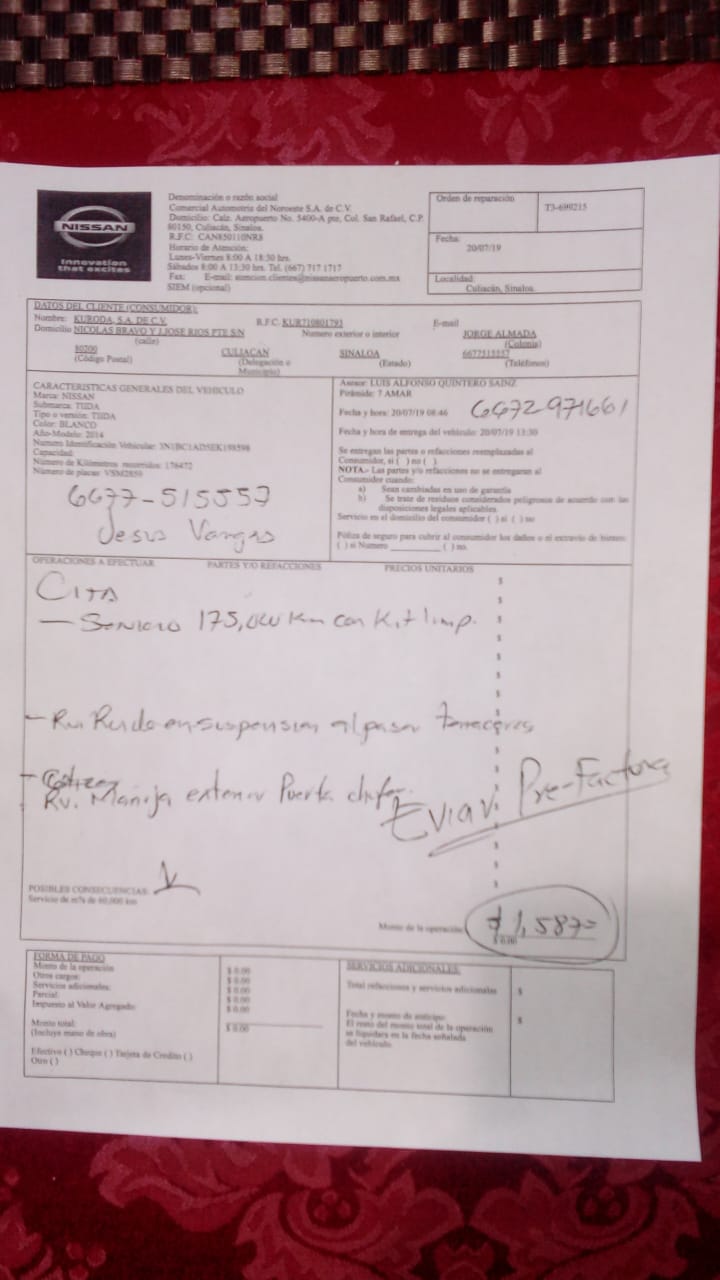 NISSAN
Innovation
that excites
Denominación o razón social
Comercial Automotriz del Noroeste S.A. de C.V.
Domicilio: Calz. Aeropuerto No. 5400-A pte, Col. San Rafael, C.P.
80150, Culiacán, Sinaloa.
R.F.C: CAN850110NR8
Horario de Atención:
Lunes-Viernes 8:00 A 18:30 hrs.
Sábados 8:00 A 13:30 hrs. Tel. (667) 717 1717
Fax: E-mail: atencion.clientes@nissanaeropuerto.com.mx
SIEM (opcional)
Orden de reparación T3-690215
Fecha:
20/07/19
Localidad:
Culiacán, Sinaloa.
DATOS DEL CLIENTE (CONSUMIDOR):
Nombre: KURODA, S.A. DE C.V. R.F.C. KUR710801793 E-mail
Domicilio NICOLAS BRAVO Y J.JOSE RIOS PTE S/N Número exterior o interior JORGE ALMADA
(calle) (Colonia)
80200 CULIACAN SINALOA
(Código Postal) (Delegación o Municipio) (Estado) (Teléfonos)
CARACTERISTICAS GENERALES DEL VEHICULO
Marca: NISSAN
Submarca: TIIDA
Tipo o versión: TIIDA
Color: BLANCO
Año-Modelo: 2014
Numero Identificación Vehicular: 3N1BC1AD5EK198598
Capacidad:
Número de Kilómetros recorridos: 176472
Número de placas: VSM2859
6677-515557
Jesus Vargas
Asesor: LUIS ALFONSO QUINTERO SAINZ
Pirámide: 7 AMAR
Fecha y hora: 20/07/19 08:46 6672971661
Fecha y hora de entrega del vehículo: 20/07/19 13:30
Se entregan las partes o refacciones reemplazadas al
Consumidor, si ( ) no ( )
NOTA.- Las partes y/o refacciones no se entregaran al
Consumidor cuando:
a) Sean cambiadas en uso de garantía
b) Se trate de residuos considerados peligrosos de acuerdo con las
disposiciones legales aplicables.
Servicio en el domicilio del consumidor ( ) si ( ) no
Póliza de seguro para cubrir al consumidor los daños o el extravío de bienes:
( ) si Numero ( ) no.
OPERACIONES A EFECTUAR PARTES Y/O REFACCIONES PRECIOS UNITARIOS
Cita
- Servicio 175,000 Km con Kit limp.
- Rv. Ruido en suspension al pasar
- Cotizar
Rv. Manija exterior Puerta
Pre-Factura
POSIBLES CONSECUENCIAS:
Servicio de más de 60,000 km
Monto de la operación $ 1,587=
$ 0.00
FORMA DE PAGO
Monto de la operación $ 0.00
Otros cargos: $ 0.00
Servicios adicionales: $ 0.00
Parcial: $ 0.00
Impuesto al Valor Agregado: $ 0.00
Monto total: $ 0.00
(Incluye mano de obra)
Efectivo ( ) Cheque ( ) Tarjeta de Credito ( )
Otro ( )
SERVICIOS ADICIONALES:
Total refacciones y servicios adicionales $
Fecha y monto de anticipo: $
El resto del monto total de la operación
se liquidara en la fecha señalada
del vehículo.